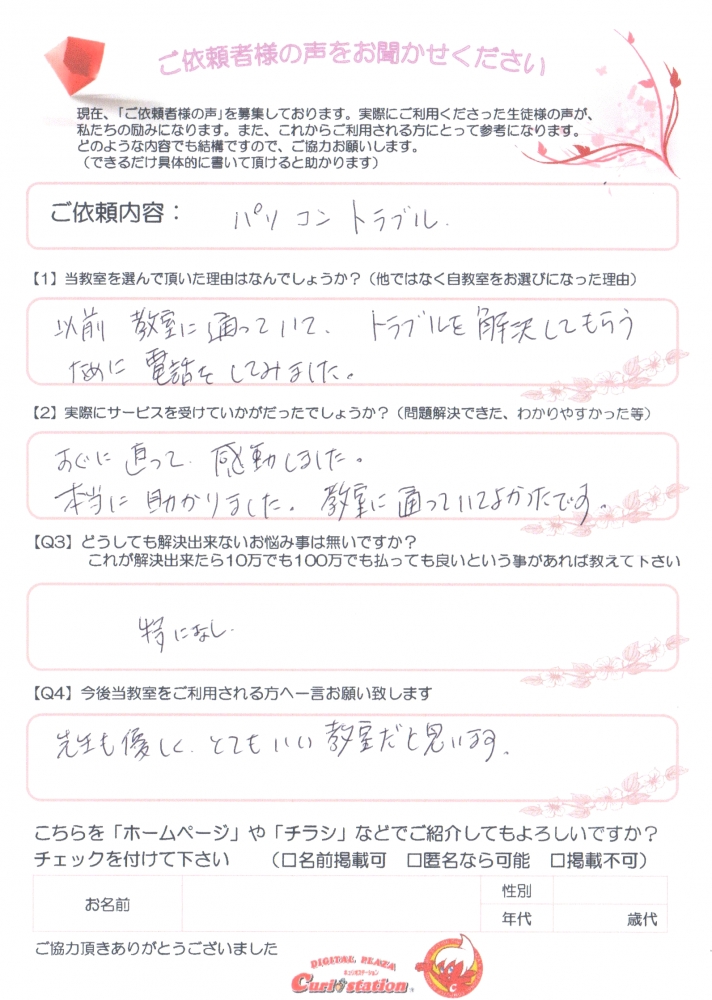 ご依頼者様の声をお聞かせください
現在、「ご依頼者様の声」を募集しております。実際にご利用くださった生徒様の声が、
私たちの励みになります。また、これからご利用される方にとって参考になります。
どのような内容でも結構ですので、ご協力お願いします。
(できるだけ具体的に書いて頂けると助かります)
ご依頼内容： パソコントラブル.
【1】当教室を選んで頂いた理由はなんでしょうか？（他ではなく自教室をお選びになった理由）
以前 教室に通っていて、トラブルを解決してもらう
ために電話をしてみました。
【2】実際にサービスを受けていかがだったでしょうか？（問題解決できた、わかりやすかった等）
すぐに直って、感動しました。
本当に助かりました。教室に通っていてよかったです。
【Q3】どうしても解決出来ないお悩み事は無いですか？
これが解決出来たら10万でも100万でも払っても良いという事があれば教えて下さい
特になし.
【Q4】今後当教室をご利用される方へ一言お願い致します
先生も優しく、とてもいい教室だと思います。
こちらを「ホームページ」や「チラシ」などでご紹介してもよろしいですか？
チェックを付けて下さい （□名前掲載可 □匿名なら可能 □掲載不可）
お名前
性別
年代 歳代
ご協力頂きありがとうございました
DIGITAL PLAZA
キュリオステーション
Curio station